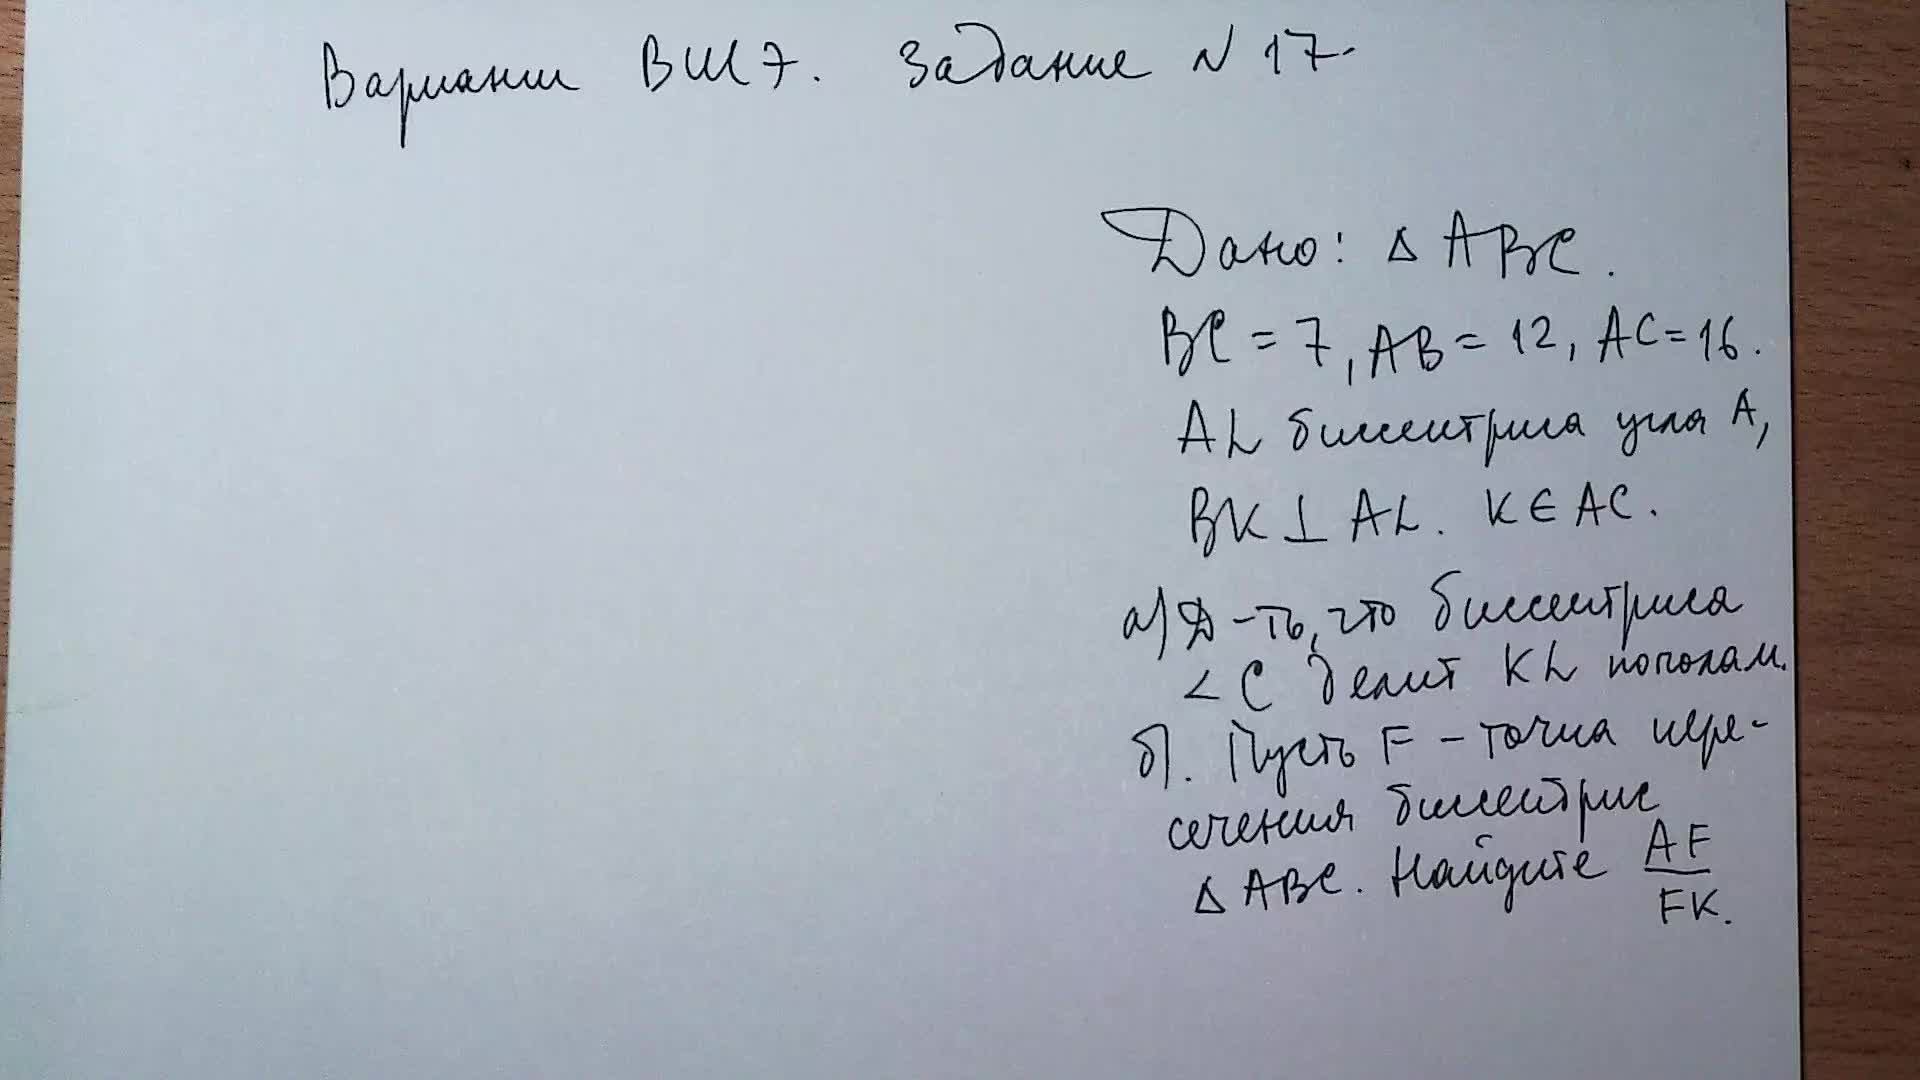 Вариант ВШ7. Задание N 17.
Дано: Δ ABC.
BC = 7, AB = 12, AC = 16.
AL биссектриса угла A,
BK ⊥ AL. K ∈ AC.
а) Д-ть, что биссектриса
< C делит KL пополам.
б). Пусть F - точка пере-
сечения биссектрис
Δ ABC. Найдите AF/FK.